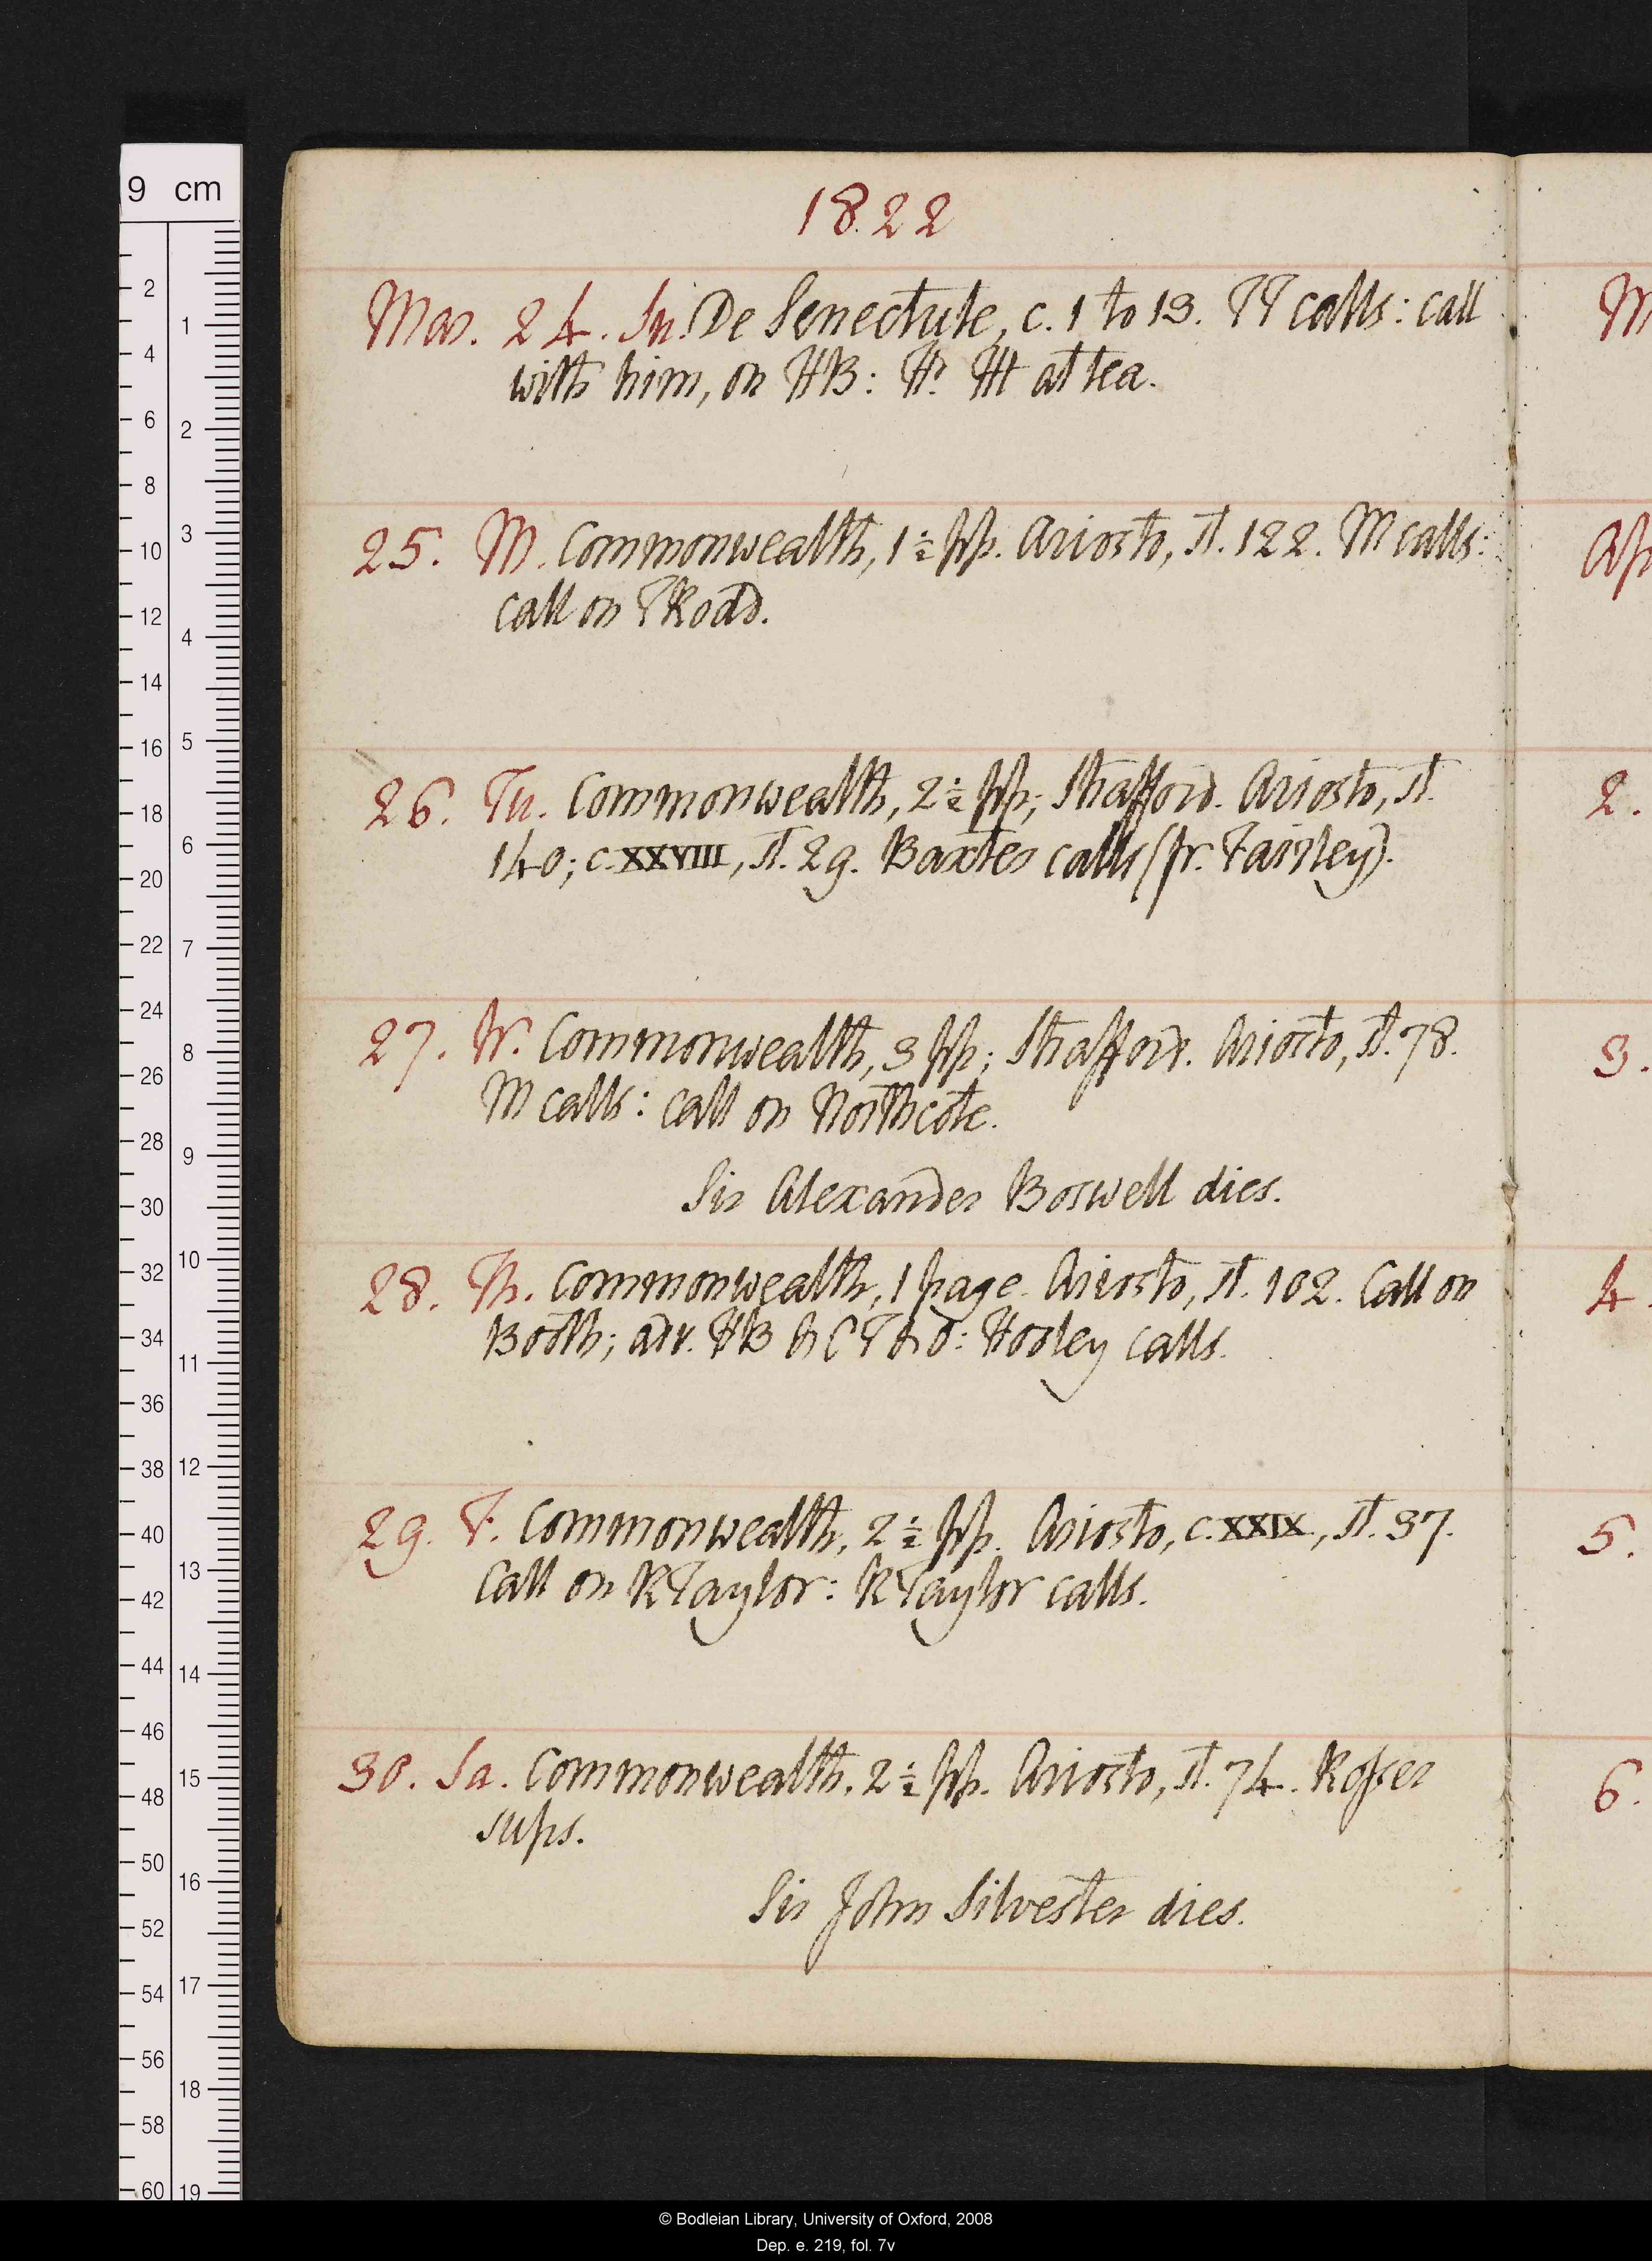 1822
Mar. 24. Su. De Senectute, c. 1 to 13. TT calls: call
with him, on HB: H. Ht at tea.
25. M. Commonwealth, 1½ pp. Ariosto, st. 122. M calls:
call on T Rodd.
26. Tu. Commonwealth, 2½ pp; Strafford. Ariosto, st.
140; c. XXVIII, st. 29. Baxter calls (fr. Fairley).
27. W. Commonwealth, 3 pp; Strafford. Ariosto, st. 78.
M calls: call on Northcote.
Sir Alexander Boswell dies.
28. Th. Commonwealth, 1 page. Ariosto, st. 102. Call on
Booth; adv. HB & CT & D: Hosley calls.
29. F. Commonwealth, 2½ pp. Ariosto, c. XXIX, st. 37.
Call on R Taylor: R Taylor calls.
30. Sa. Commonwealth, 2½ pp. Ariosto, st. 74. Rosser
sups.
Sir John Silvester dies.
M
Ap
2.
3.
4.
5.
6.
9 cm
2 4 6 8 10 12 14 16 18 20 22 24 26 28 30 32 34 36 38 40 42 44 46 48 50 52 54 56 58 60
1 2 3 4 5 6 7 8 9 10 11 12 13 14 15 16 17 18 19
© Bodleian Library, University of Oxford, 2008
Dep. e. 219, fol. 7v